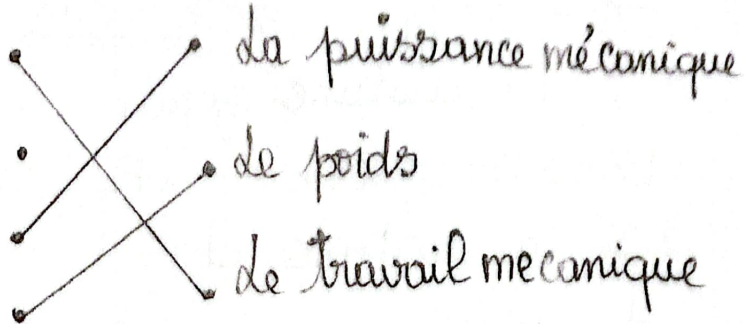 La puissance mécanique
Le poids
Le travail mecanique